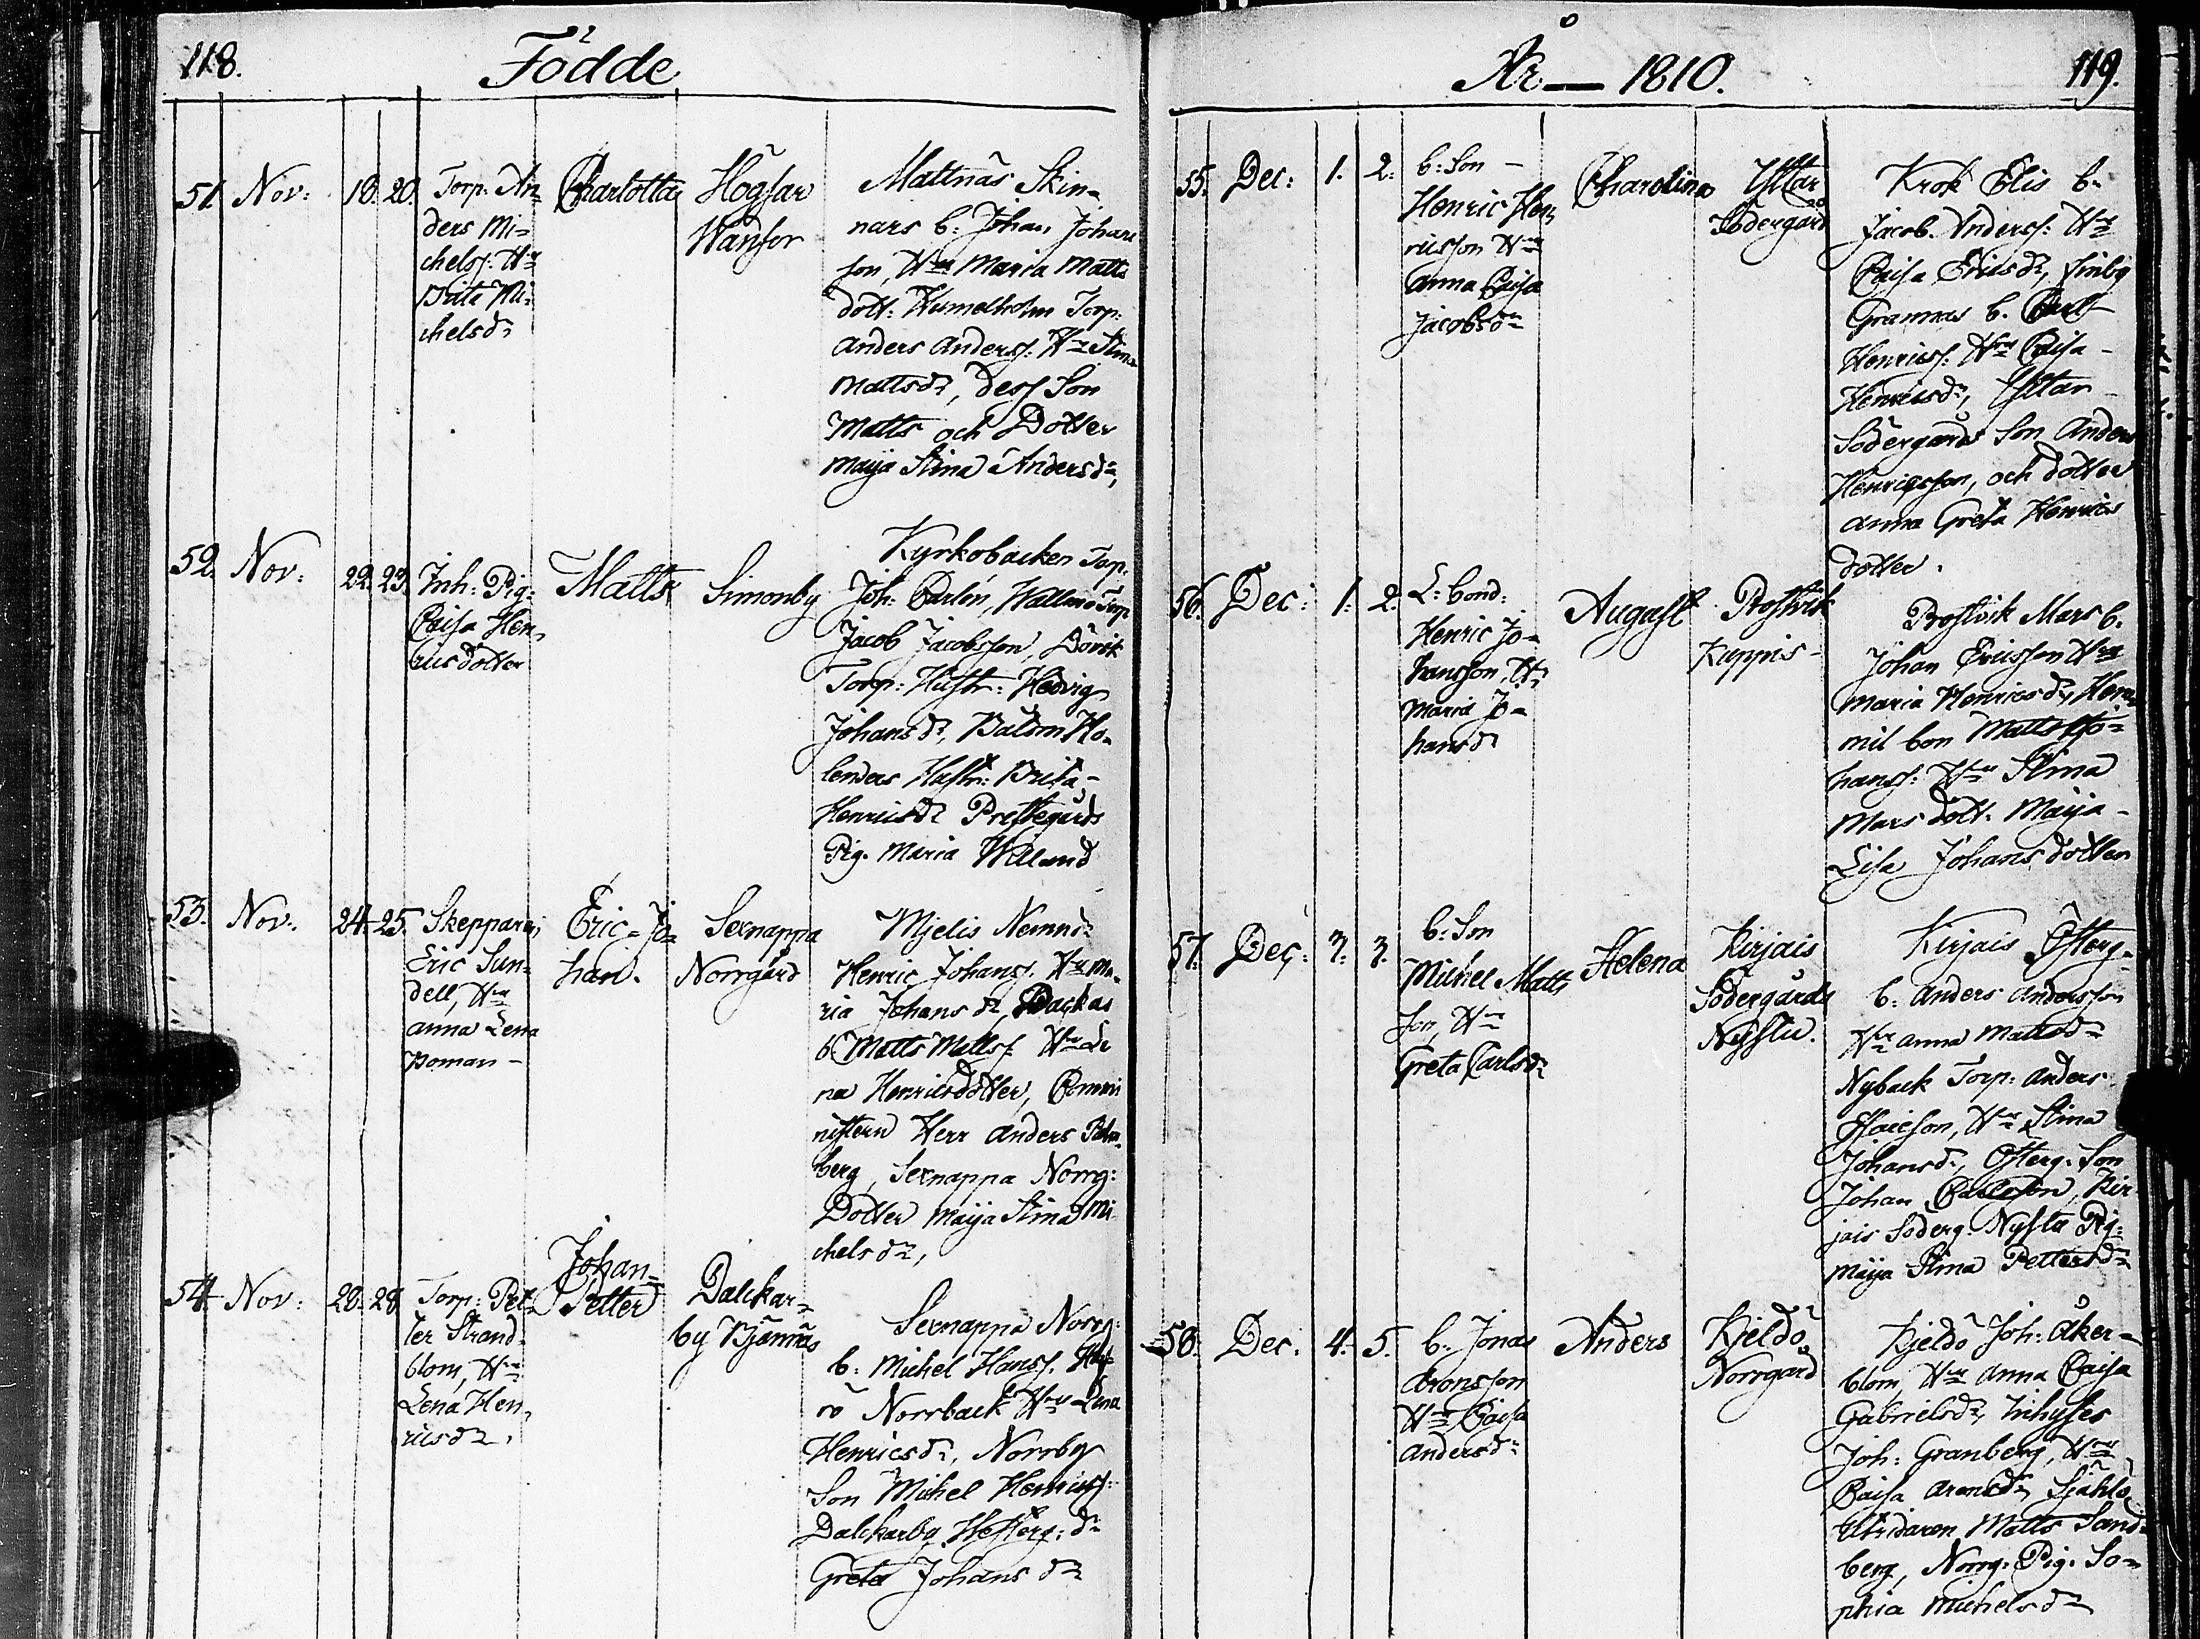 118.
Födde
51. Nov: 18. 20.
Torp: An-
ders Mi-
chelss: Hu
Brita Mi-
chelsdr
Charlotta
Högsar
Wänfor
Mattnäs Skin-
nars b: Johan Johans
son, Hu Maria Matts
dott: Humelholm Torp:
Anders Anderss: Hu Stina
Mattsdr, dess Son
Matts och Dotter
Maija Stina Andersdr,
52. Nov: 22. 23.
Inh: Pig:
Caisa Hen-
ricsdotter
Matts
Simonby
Kyrkobacken Torp:
Joh: Carlén, Wallmo Torp:
Jacob Jacobsson,
Torp: Hustr: Hedvig
Johansdr,
lenders Hustr: Brita
Henricsdr Prestegårds
Pig. Maria Willand
53. Nov. 24. 25.
Skepparen
Eric Sun-
dell, Hu
Anna Lena
Boman
Eric-Jo-
han.
Sexnappa
Norrgård
Mjelis Nemnd:
Henric Johanss. Hu Ma-
ria Johansdr, Backas
b. Matts Mattss. Hu Le
na Henricsdotter, Commi
nistern Herr Anders
berg, Sexnappa Norrg:
Dotter Maija Stina Mi
chelsdr,
54. Nov: 28. 28.
Torp: Pet-
ter Strand-
blom, Hu
Lena Hen-
ricsdr.
Johan-
Petter
Dalckar-
by Björnnäs
Sexnappa Norrg:
b: Michel Hanss.
ö Norrback Hu Lena
Henricsdr, Norrby
Son Michel Henricss:
Dalckarby Westerg: dr
Greta Johansdr
År — 1810.
119.
55. Dec: 1. 2.
b: Son
Henric Hen
ricsson Hu
Anna Caisa
Jacobsdr
Charolina
Yttar
Södergård
Krok Elis b.
Jacob Anderss: Hu
Caisa Ericsdr, Finby
Grannas b. Carl
Henricss: Hu Caisa
Henricsdr, Yttar
Södergårds Son Anders
Henricsson, och dotter
Anna Greta Henrics
dotter.
56. Dec: 1. 2.
L: bond:
Henric Jo-
hansson, Hu
Maria Jo-
hansdr
August
Rostvik
Kuppis
Rostvik Mars b.
Johan Ericsson Hu
Maria Henricsdr,
mil bon Matts Jo-
hanss: Hu Stina
Mars dott: Maija
Lisa Johansdotter
57. Dec: 3. 3.
b: Son
Michel Matts
son, Hu
Greta Carlsdr
Helena
Kirjais
Södergårds
Nystu.
Kirjais Österg.
b: Anders Andersson
Hu Anna Mattsdr
Nyback Torp: Anders
Isacson, Hu Stina
Johansdr, Österg. Son
Johan Carlsson, Kir
jais Söderg. Nystu Pig:
Maija Stina Pettersdr
58. Dec: 4. 5.
b: Jonas
Aronsson
Hu Caisa
Andersdr
Anders
Kjeldö
Norrgård
Kjeldö Joh: Åker-
blom, Hu Anna Caisa
Gabrielsdr, Inhyses
Joh: Granberg, Hu
Caisa Aronsdr Själö
Utridaren Matts Sand-
berg, Norrg: Pig: So-
phia Michelsdr